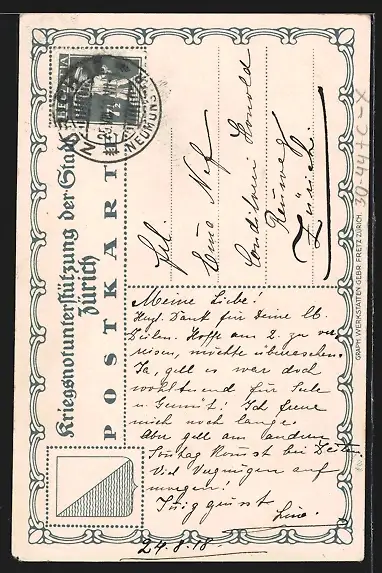 Kriegsnotunterstützung der Stadt
Zürich
POSTKARTE
HELVETIA
7½
NEUMÜNS
Frl.
Nef
Conditorei Honold
Rennweg
Zürich
30-44+C-X
GRAPH. WERKSTÄTTEN GEBR. FRETZ ZÜRICH.
Meine Liebe!
Hzl. Dank für Deine lb.
Zeilen. Hoffe am 2. zu ver
reisen, möchte überraschen.
Ja, gell es war doch
wohltuend für Seele
u Gemüt! Ich freue
mich noch lange.
Aber gell am andern
Sonntag kommst bei
Viel Vergnügen auf
morgen!
Innig grüsst
Line.
24.8.18.